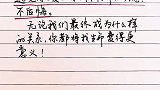 不后悔。
无论我们最终成为什么样
的关系，你都将我生命变得更
意义！